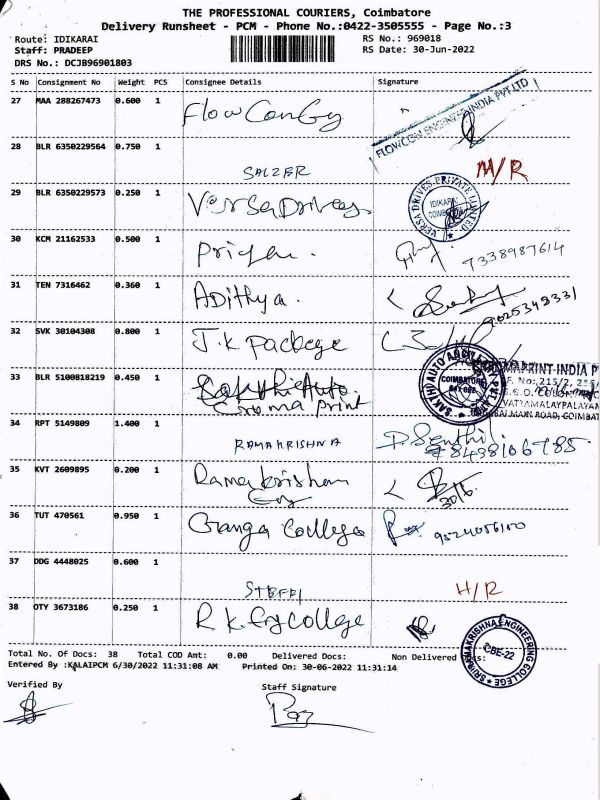 THE PROFESSIONAL COURIERS, Coimbatore
Delivery Runsheet - PCM - Phone No.:0422-3505555 - Page No.:3
Route: IDIKARAI RS No.: 969018
Staff: PRADEEP RS Date: 30-Jun-2022
DRS No.: DCJB96901803
S No Consignment No Weight PCS Consignee Details Signature
27 MAA 288267473 0.600 1 Flow
FLOWCON ENGINEERS INDIA PVT LTD
28 BLR 6350229564 0.750 1
SALZER M/R
29 BLR 6350229573 0.250 1 Versa Drives
VERSA DRIVES PRIVATE LIMITED
IDIKARAI
COIMBATORE
30 KCM 21162533 0.500 1 7338987614
31 TEN 7316462 0.360 1 Adithya.
9025349331
32 SVK 30104308 0.800 1 J.K. package
33 BLR 5100818219 0.450 1 Sakthi Auto
Croma print
SAKTHI AUTO
COIMBATORE
PRINT INDIA P
34 RPT 5149809 1.400 1
RAMAKRISHNA P. Senthil
8438106785
35 KVT 2609895 0.200 1 Ramakrishna
30/6
36 TUT 470561 0.950 1 Ganga College
37 DDG 4448025 0.600 1
H/R
38 OTY 3673186 0.250 1 R.K. Eng College
SRI RAMAKRISHNA ENGINEERING COLLEGE
CBE-22
Total No. Of Docs: 38 Total COD Amt: 0.00 Delivered Docs: Non Delivered
Entered By :KALAIPCM 6/30/2022 11:31:08 AM Printed On: 30-06-2022 11:31:14
Verified By Staff Signature